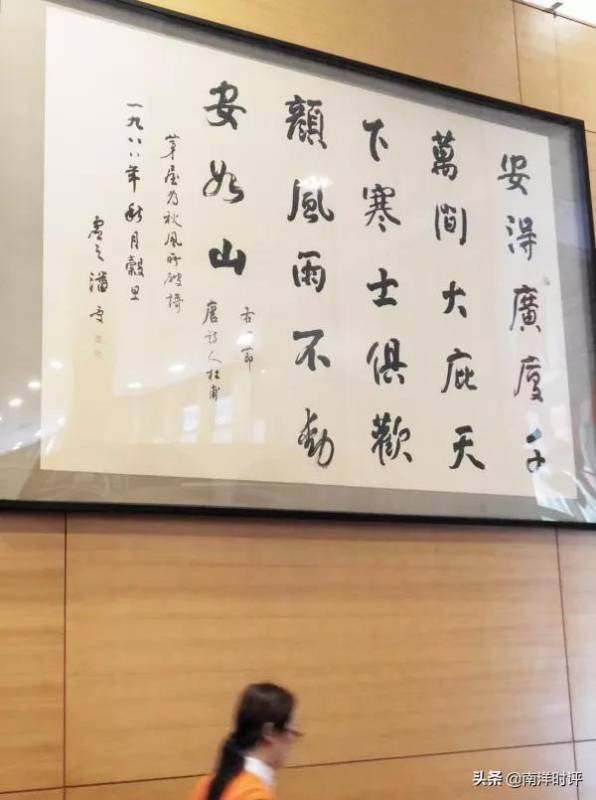 安得廣廈千
萬間大庇天
下寒士俱歡
顏風雨不動
安如山
右一節
唐詩人杜甫
茅屋為秋風所破謌
一九八八年秋月穀旦
虛之潘受
头条 @南洋时评